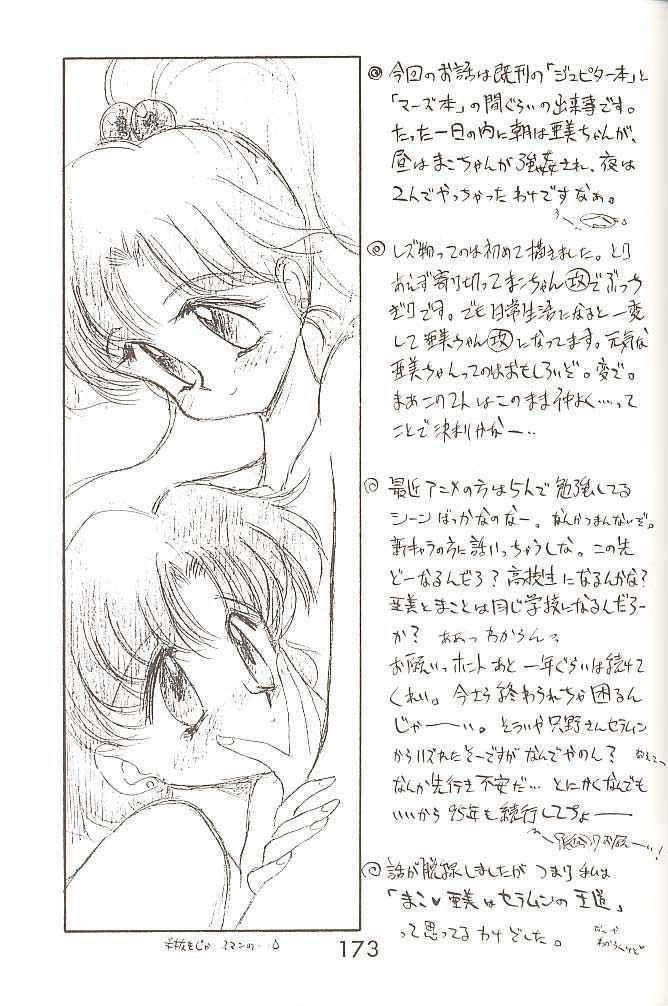 ◎今回のお話は既刊の「ジュピター本」と
「マーズ本」の間ぐらいの出来事です。
たった一日の内に朝は亜美ちゃんが、
昼はまこちゃんが強姦され、夜は
2人でやっちゃったわけですなぁ。
◎レズ物ってのは初めて描きました。とり
あえず寄り切ってまこちゃん攻でぶっち
ぎりです。でも日常生活になると一変
して亜美ちゃん攻になってます。元気な
亜美ちゃんってのはおもしろいぞ。変で。
まあこの2人はこのまま仲よく…って
ことで決まりかなー‥
◎最近アニメの方は5人で勉強してる
シーンばっかなのなー。なんかつまんないぞ。
新キャラの方に話いっちゃうしな。この先
どーなるんだろ?高校生になるんかな?
亜美とまことは同じ学校になるんだろー
か? ああっわからんっ
お願いっホントあと一年ぐらいは続けて
くれい。今さら終わられちゃ困るん
じゃーーい。そういや只野さんセラムン
からハズれたそーですがなんでやのん?
なんか先行き不安だ…とにかくなんでも
いいから95年も続行してちょーー
◎話が脱線しましたがつまり私は
「まこ♥亜美はセラムンの王道」
って思ってるわけでした。
173